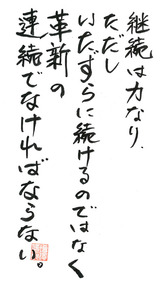 継続は力なり、
ただし
いたずらに続けるのではなく
革新の
連続でなければならない。